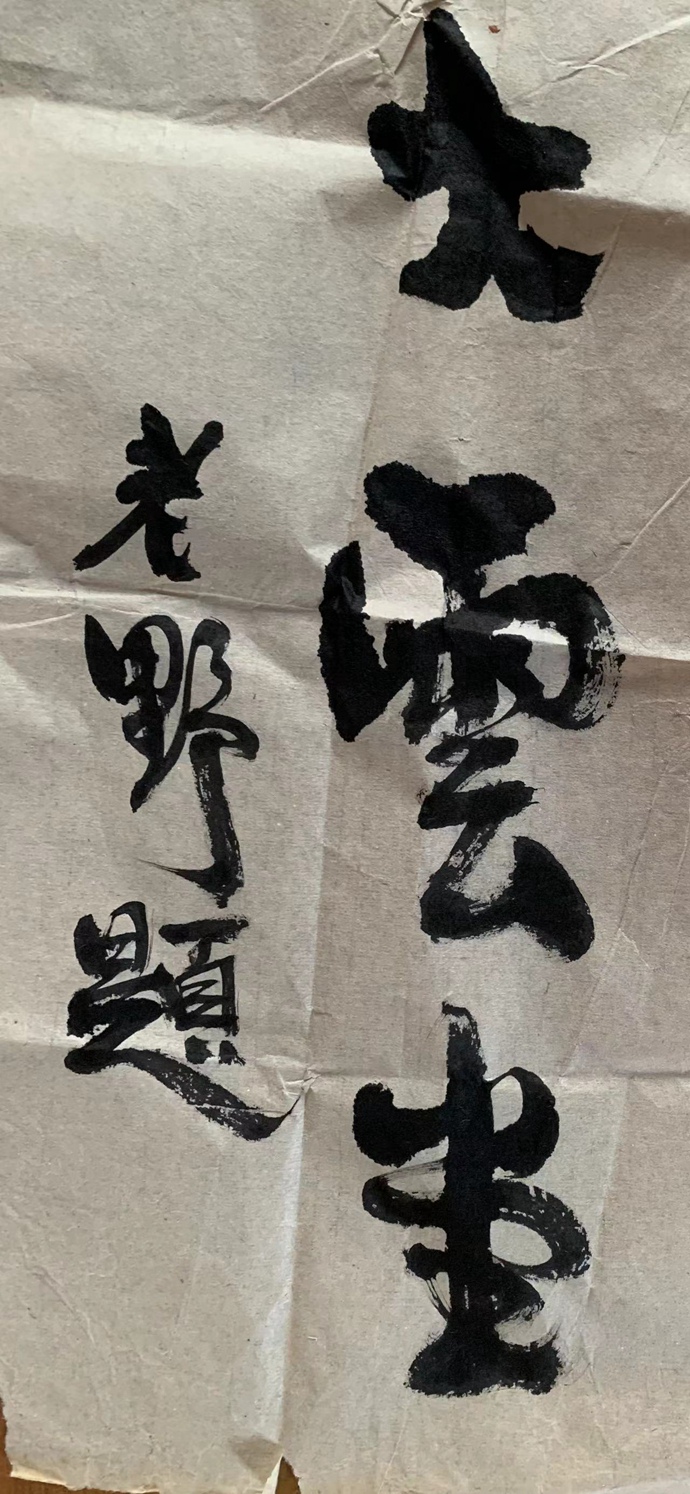 大雲堂
老野題